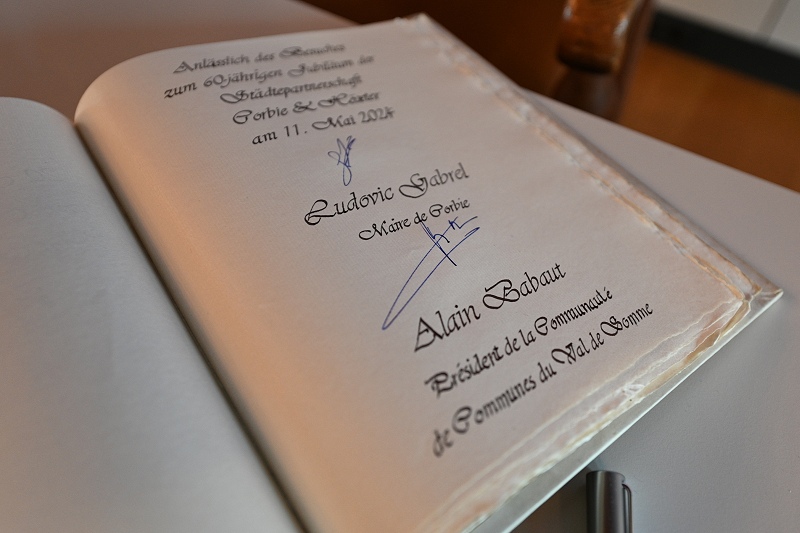 Anlässlich des Besuches
zum 60-jährigen Jubiläum der
Städtepartnerschaft
Corbie & Höxter
am 11. Mai 2024
Ludovic Gabrel
Maire de Corbie
Alain Babaut
Président de la Communauté
de Communes du Val de Somme